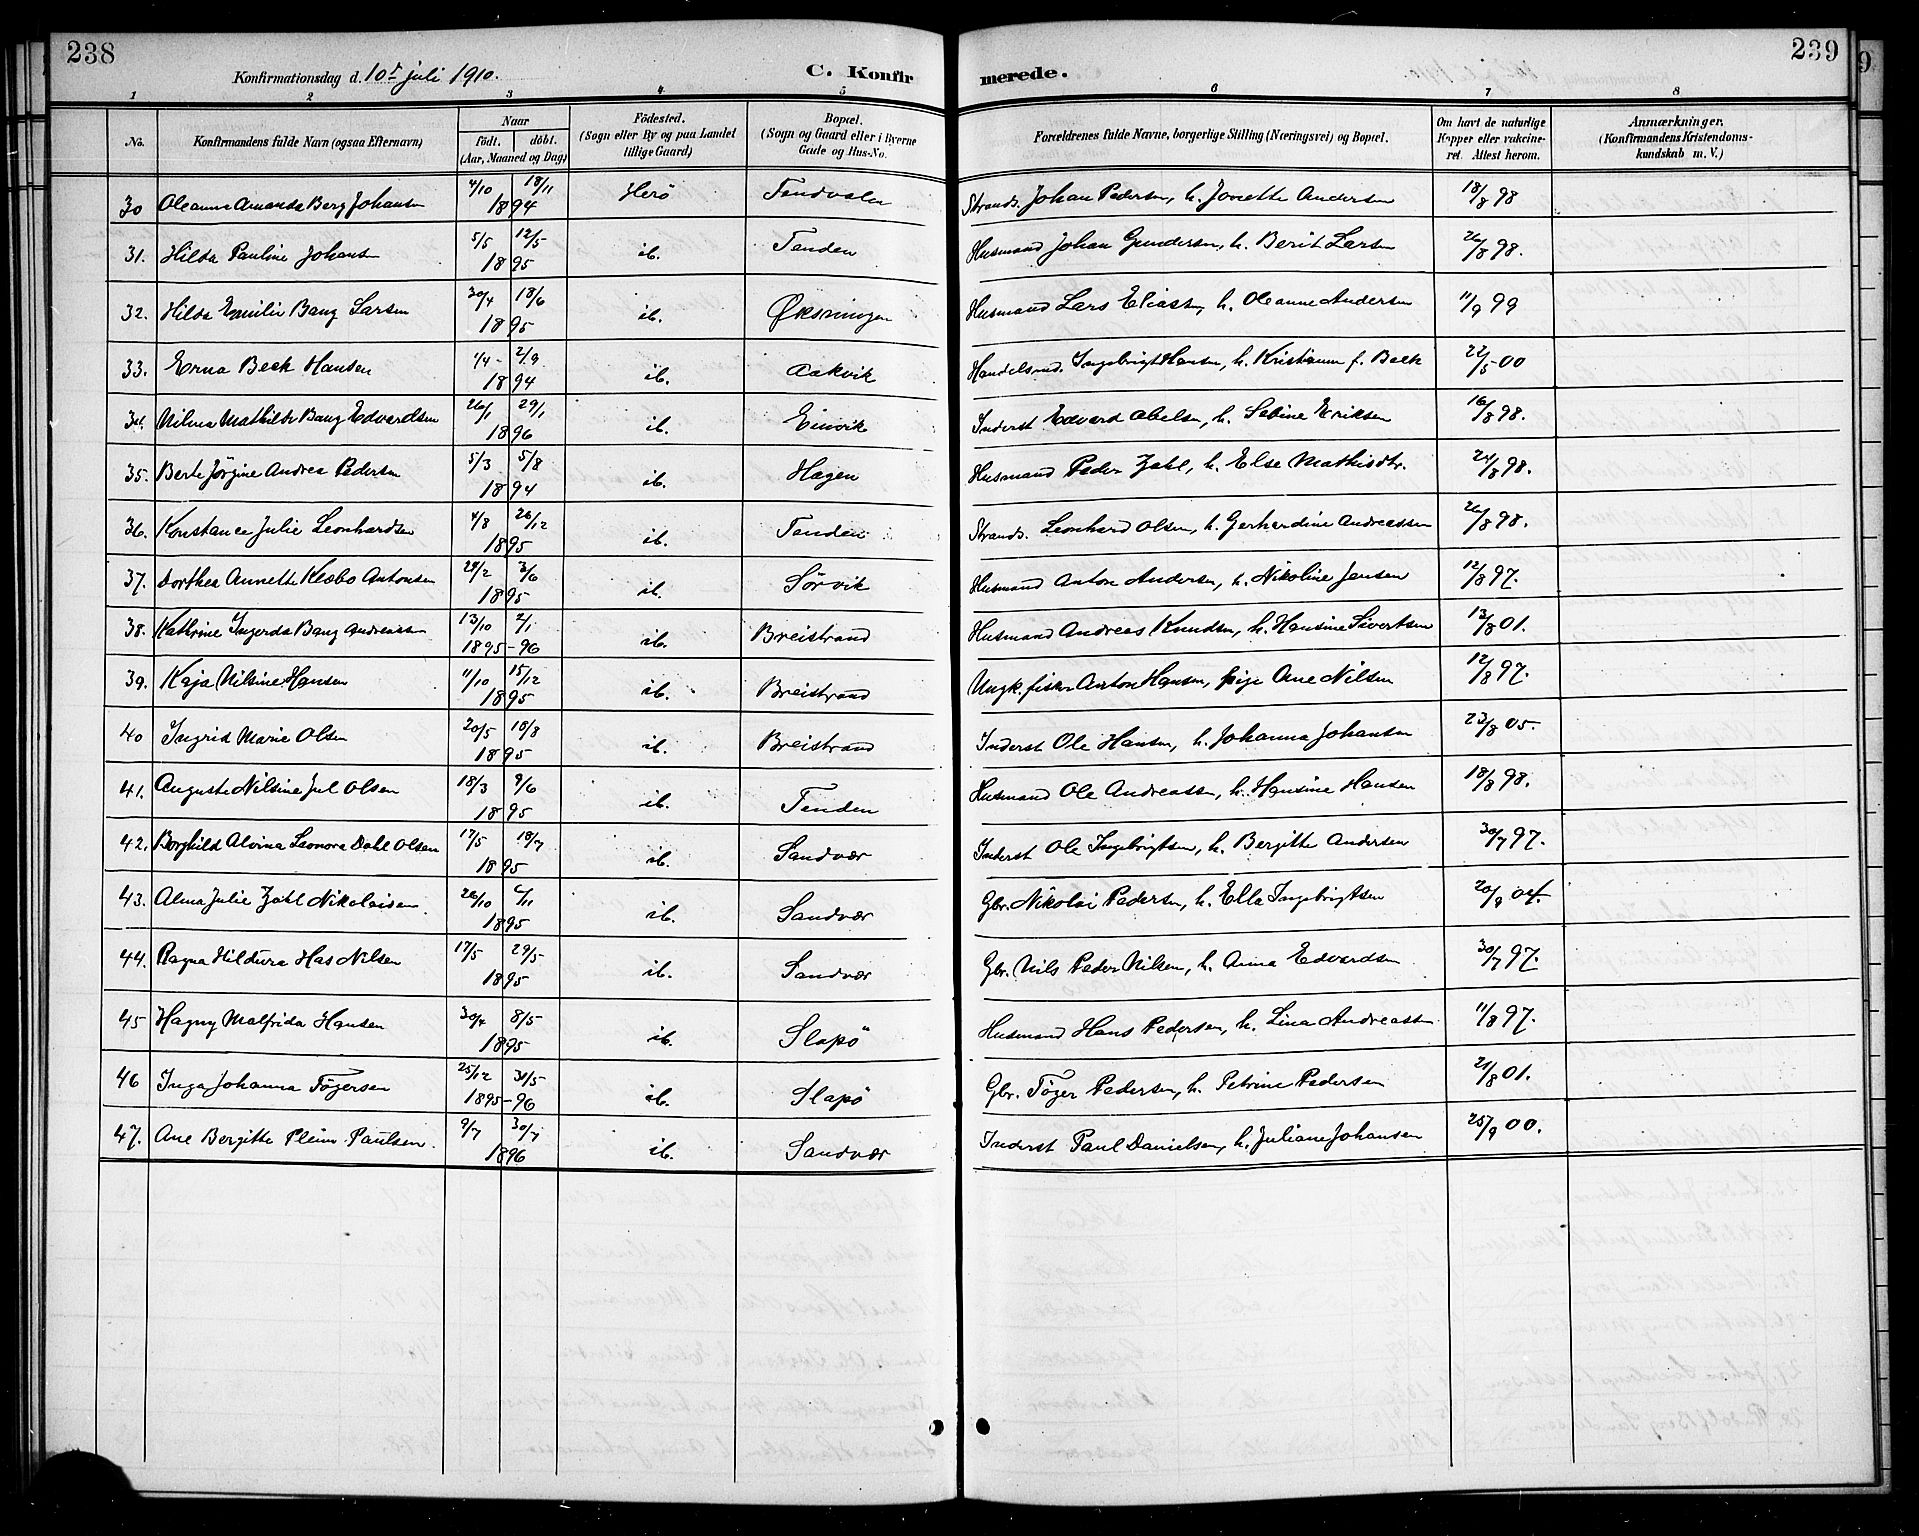 238
239
Konfirmationsdag d. 10de juli 1910.
C. Konfir
merede.
1 2 3 4 5 6 7 8
No.
Konfirmandens fulde Navn (ogsaa Efternavn)
Naar
födt. döbt.
(Aar, Maaned og Dag)
Födested.
(Sogn eller By og paa Landet
tillige Gaard)
Bopæl.
(Sogn og Gaard eller i Byerne
Gade og Hus-No.
Forældrenes fulde Navne, borgerlige Stilling (Næringsvei) og Bopæl.
Om havt de naturlige
Kopper eller vakcine-
ret. Attest herom.
Anmærkninger.
(Konfirmandens Kristendoms-
kundskab m. V.)
30 Oleanna Amanda Berg Johansen 4/10 18/11 1894 Herö Tendvalen Strands. Johan Pedersen, h. Jonette Andersen 18/8 98
31. Hilda Pauline Johansen 5/5 12/5 1895 ib. Tenden Husmand Johan Gundersen, h. Berit Larsen 26/8 98.
32. Hilda Emilie Bang Larsen 30/4 18/6 1895 ib. Øksningen Husmand Lars Eliassen, h. Oleanne Andersen 11/9 99
33. Erna Beck Hansen 1/4 - 2/9 1894 ib. Aakvik Handelsmd. Ingebrigt Hansen, h. Kristianna f. Beck 22/5 00
34. Nilma Mathilde Bang Edvardsen 26/1 29/1 1896 ib. Einvik Inderst Edvard Abelsen, h. Sabine Eriksen 16/8 98.
35. Berte Jørgine Andrea Pedersen 5/3 5/8 1894 ib. Hagen Husmand Peder Zahl, h. Else Mathisdtr. 24/8 98.
36. Konstance Julie Leonhardsen 4/8 26/12 1895 ib. Tenden Strands. Leonhard Olsen, h. Gerhardine Andreassen 26/8 98.
37. Dorthea Annette Klæbo Antonsen 24/2 3/6 1895 ib. Sørvik Husmand Anton Andersen, h. Nikoline Jensen 12/8 97.
38. Kathrine Ingerda Bang Andreassen 13/10 2/1 1895-96 ib. Breistrand Husmand Andreas Knudsen, h. Hansine Sivertsen 13/8 01.
39. Kaja Nilsine Hansen 11/10 15/12 1895 ib. Breistrand Ungk. fisker Anton Hansen, pige Ane Nilsen 12/8 97.
40 Ingrid Marie Olsen 20/5 18/8 1895 ib. Breistrand Inderst Ole Hansen, h. Johanna Johansen 23/8 05.
41. Auguste Nilsine Jul Olsen 18/3 9/6 1895 ib. Tenden Husmand Ole Andreassen, h. Hansine Hansen 18/8 98.
42. Borghild Alvina Leonora Dahl Olsen 17/5 18/7 1895 ib. Sandvær Inderst Ole Ingebrigtsen, h. Bergitte Andersen 30/7 97.
43. Alma Julie Zahl Nikolaisen 26/10 6/11 1895 ib. Sandvær Gbr. Nikolai Pedersen, h. Ella Ingebrigtsen 20/9 04.
44. Ragna Hildura Has Nilsen 17/5 29/5 1895 ib. Sandvær Gbr. Nils Peder Nilsen, h. Anna Edvardsen 30/7 97.
45 Hagny Malfrida Hansen 30/4 8/5 1895 ib. Slapö Husmand Hans Pedersen, h. Lina Andreassen 11/8 97.
46 Inga Johanna Tøgersen 25/12 31/5 1895-96 ib. Slapö Gbr. Tøger Pedersen, h. Petrine Pedersen 21/8 01.
47. Ane Bergitte Pleim Paulsen. 9/7 30/7 1896 ib. Sandvær Inderst Paul Danielsen, h. Juliane Johansen 25/9 00.